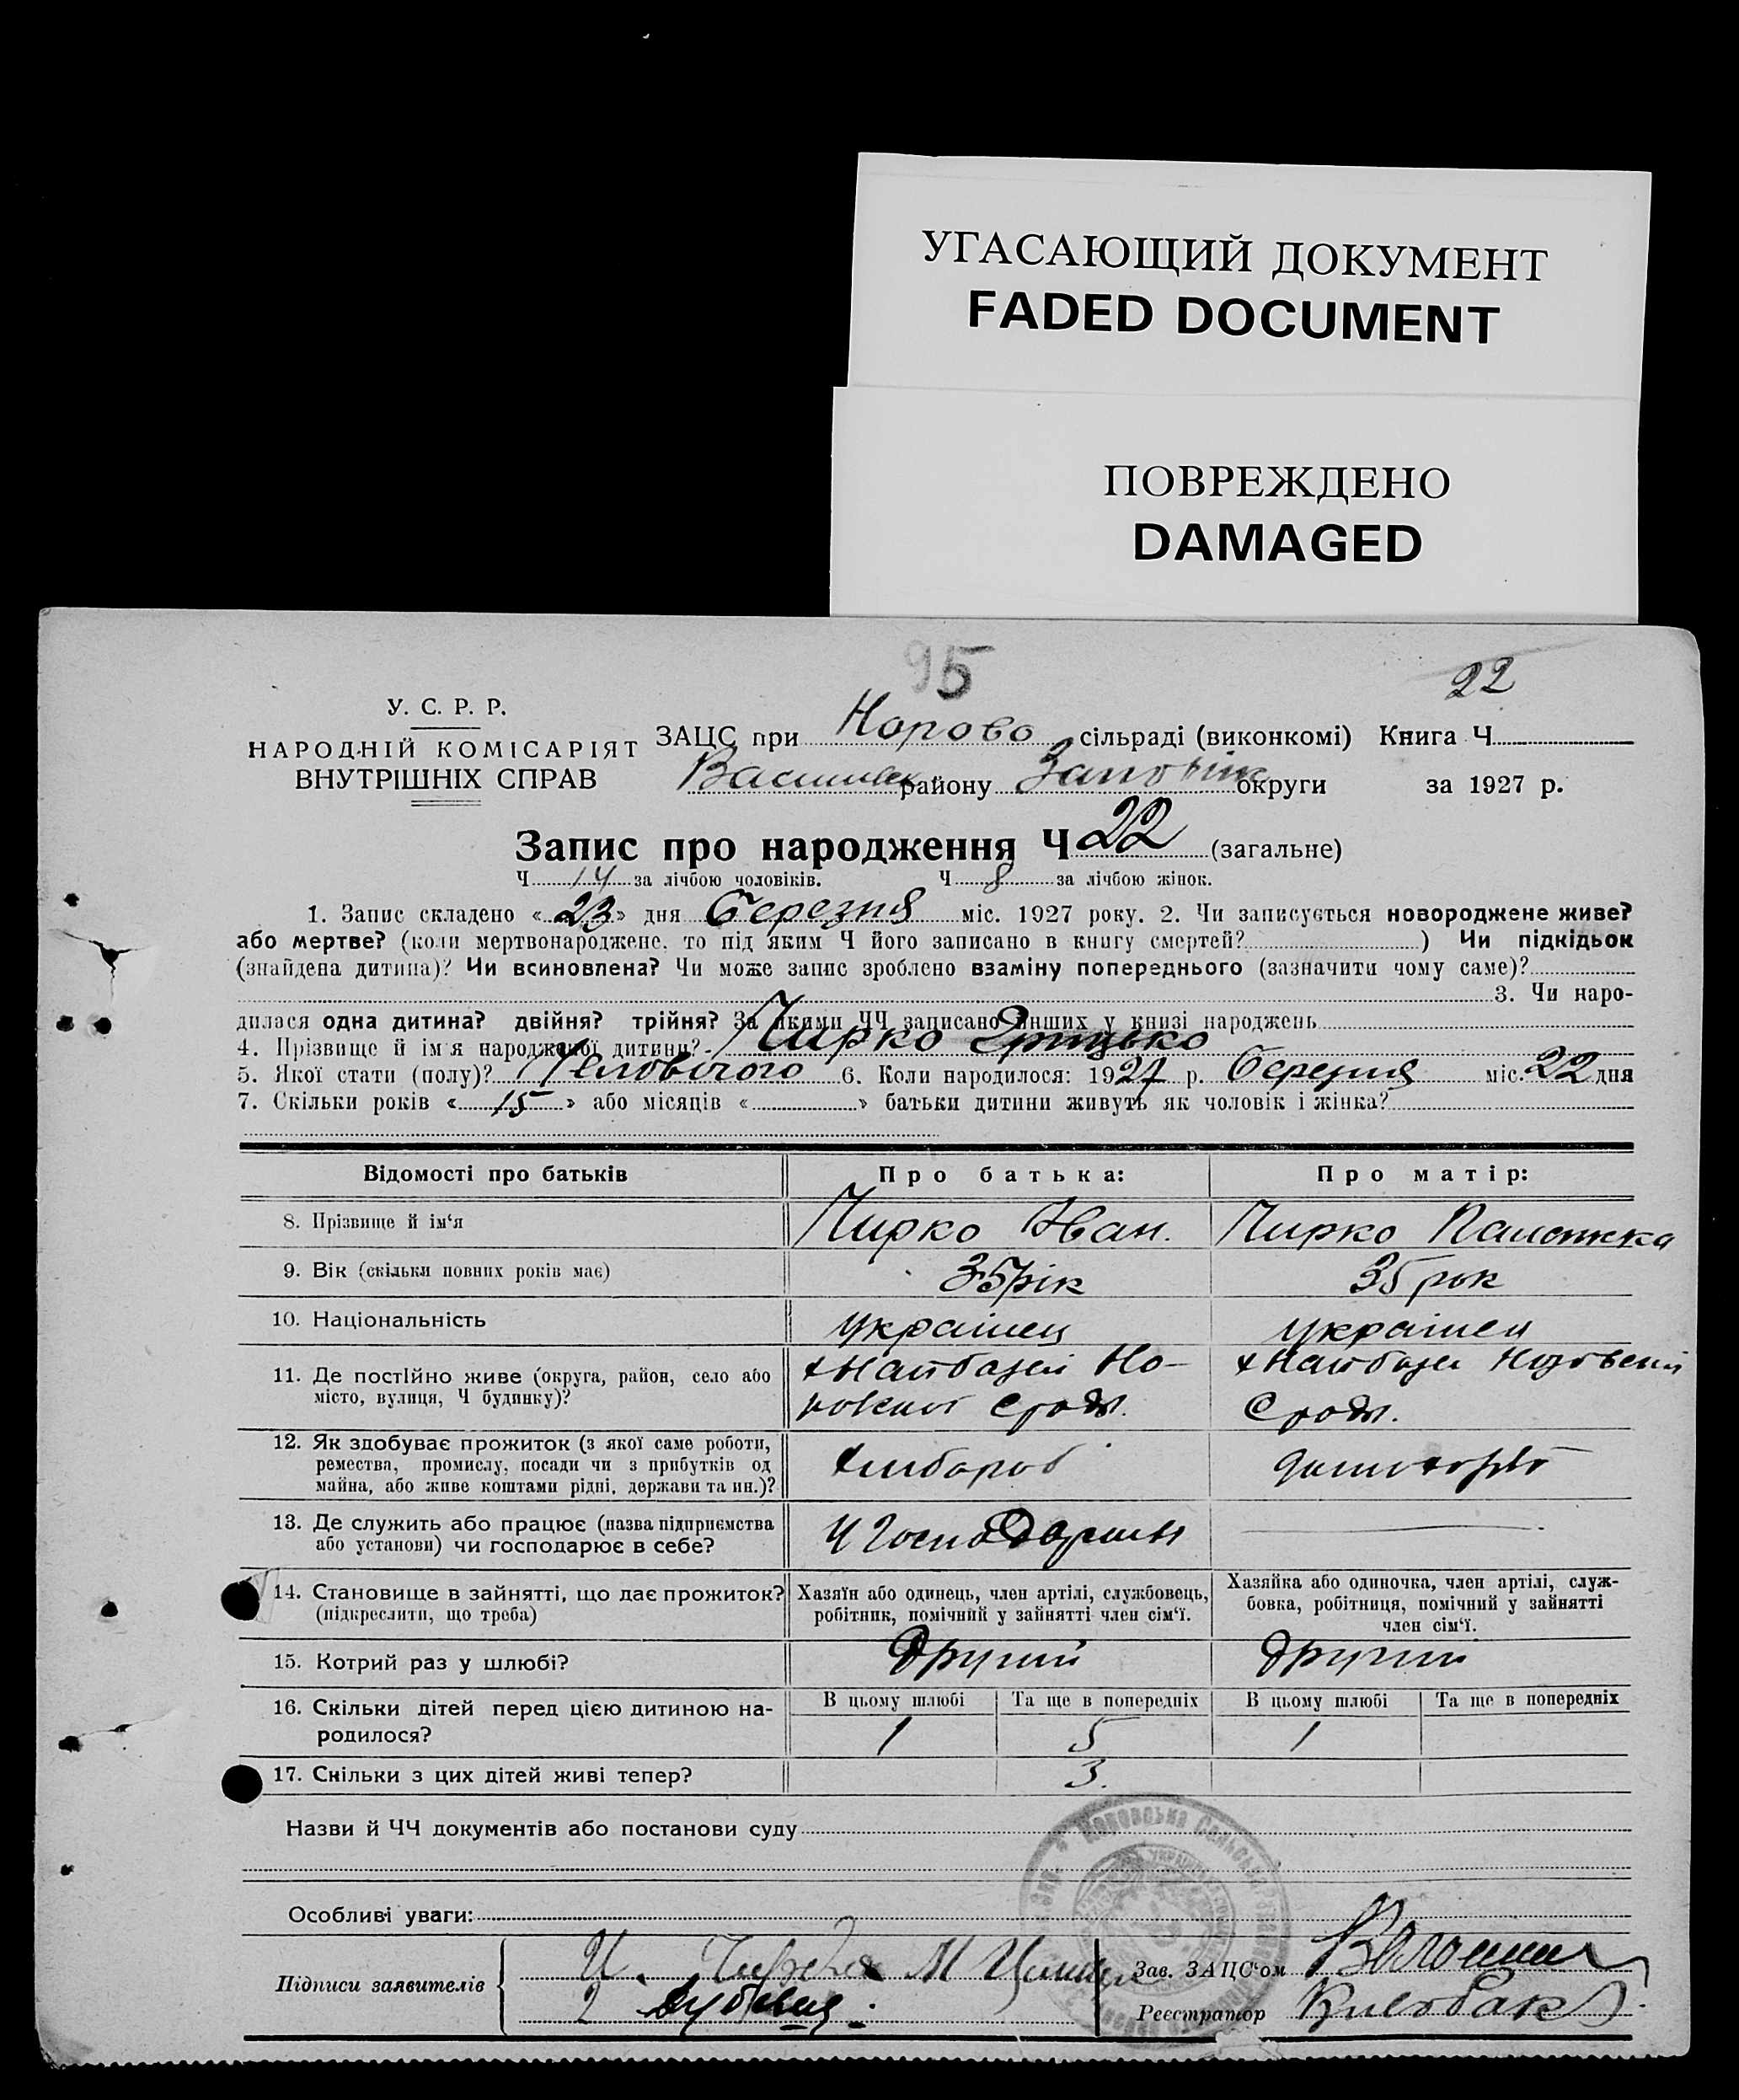 УГАСАЮЩИЙ ДОКУМЕНТ
FADED DOCUMENT
ПОВРЕЖДЕНО
DAMAGED
95
22
У. С. Р. Р.
НАРОДНІЙ КОМІСАРІЯТ
ВНУТРІШНІХ СПРАВ
ЗАЦС при сільраді (виконкомі) Книга Ч.
району округи за 1927 р.
Запис про народження Ч 22 (загальне)
Ч 14 за лічбою чоловіків. Ч 8 за лічбою жінок.
1. Запис складено «23» дня Березня міс. 1927 року. 2. Чи записується новороджене живе?
або мертве? (коли мертвонароджене, то під яким Ч його записано в книгу смертей? ) Чи підкідьок
(знайдена дитина)? Чи всиновлена? Чи може запис зроблено взаміну попереднього (зазначити чому саме)?
3. Чи наро-
дилася одна дитина? двійня? трійня? За якими ЧЧ записано инших у книзі народжень
4. Прізвище й імя народженої дитини? Чирко Грицько
5. Якої стати (полу)? 6. Коли народилося: 1927 р. Березня міс. 22 дня
7. Скільки років «15» або місяців « » батьки дитини живуть як чоловік і жінка?
Відомості про батьків
Про батька:
Про матір:
8. Прізвище й ім‘я
Чирко Іван.
Чирко
9. Вік (скільки повних років має)
35 рік
35 рок
10. Національність
українец
українец
11. Де постійно живе (округа, район, село або
місто, вулиця, Ч будинку)?
12. Як здобуває прожиток (з якої саме роботи,
ремества, промислу, посади чи з прибутків од
майна, або живе коштами рідні, держави та ин.)?
13. Де служить або працює (назва підприємства
або установи) чи господарює в себе?
14. Становище в зайнятті, що дає прожиток?
(підкреслити, що треба)
Хазяїн або одинець, член артілі, службовець,
робітник, помічний у зайнятті член сім‘ї.
Хазяйка або одиночка, член артілі, служ-
бовка, робітниця, помічний у зайнятті
член сім‘ї.
15. Котрий раз у шлюбі?
Другий
Другий
16. Скільки дітей перед цією дитиною на-
родилося?
В цьому шлюбі
Та ще в попередніх
В цьому шлюбі
Та ще в попередніх
1
5
1
17. Скільки з цих дітей живі тепер?
3.
Назви й ЧЧ документів або постанови суду
Особливі уваги:
Підписи заявителів
Зав. ЗАЦС‘ом
Реєстратор